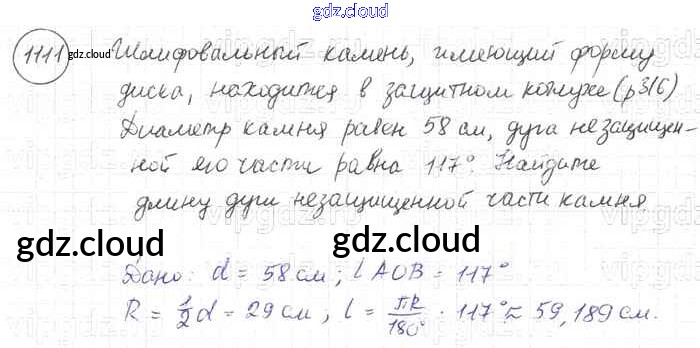 gdz.cloud
1111 gdz.cloud Шлифовальный камень, имеющий форму
диска, находится в защитном кожухе (р316)
Диаметр камня равен 58 см, дуга незащищен-
ной его части равна 117°. Найдите
длину дуги незащищенной части камня
gdz.cloud gdz.cloud
Дано: d = 58 см; ∠AOB = 117°
R = 1/2 d = 29 см; l = πR/180° · 117° ≈ 59,189 см.